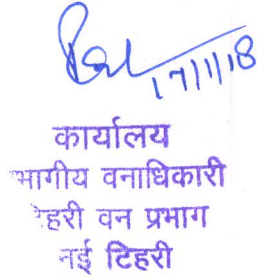 17/1/18
कार्यालय
भागीय वनाधिकारी
टिहरी वन प्रभाग
नई टिहरी